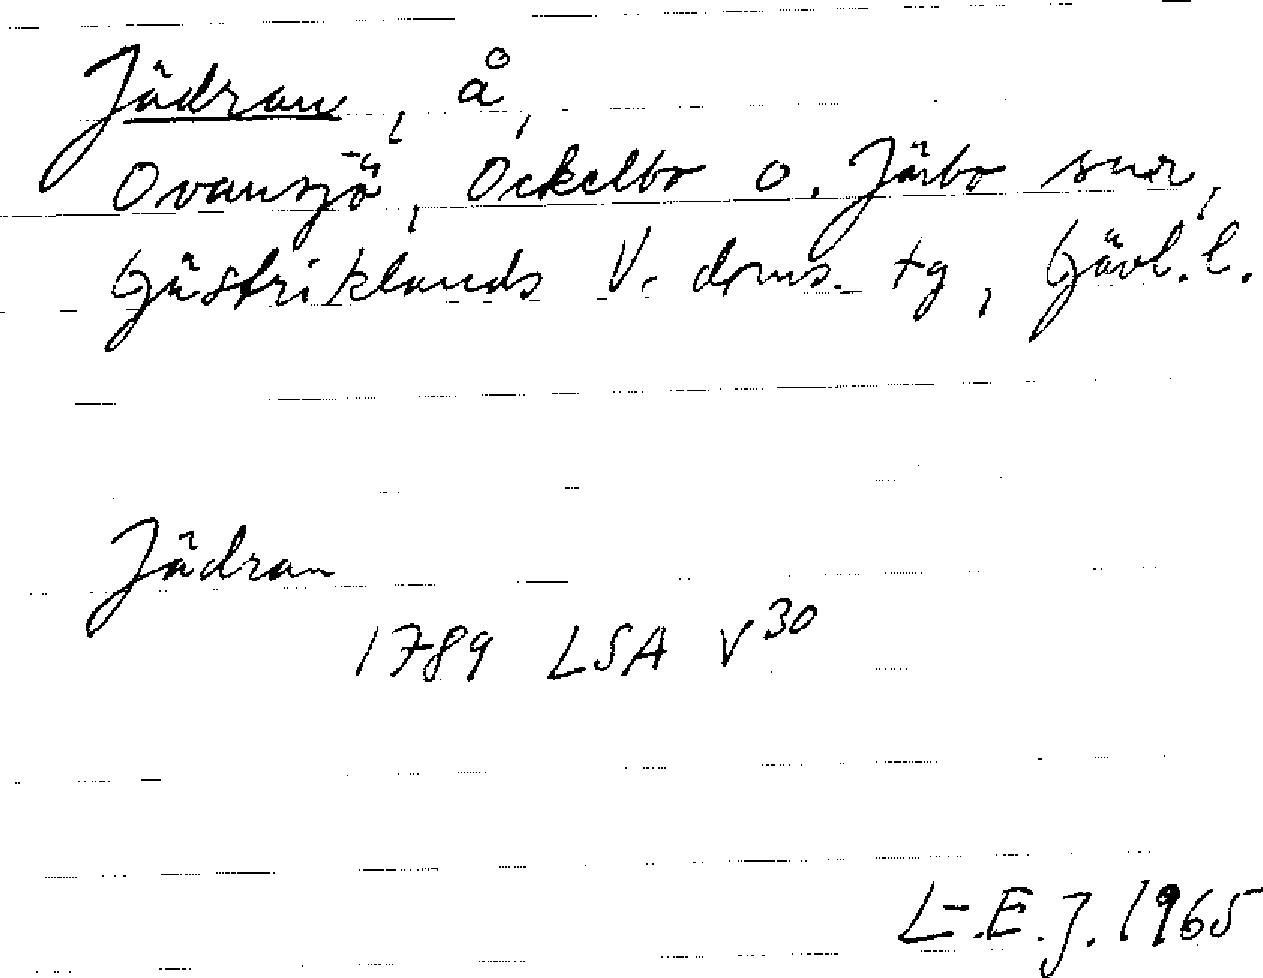 Jädran, å,
Ovansjö, Ockelbo o. Järbo snr,
Gästriklands V. doms. tg, Gävl. l.
Jädran
1789 LSA V30
L-E.J. 1965